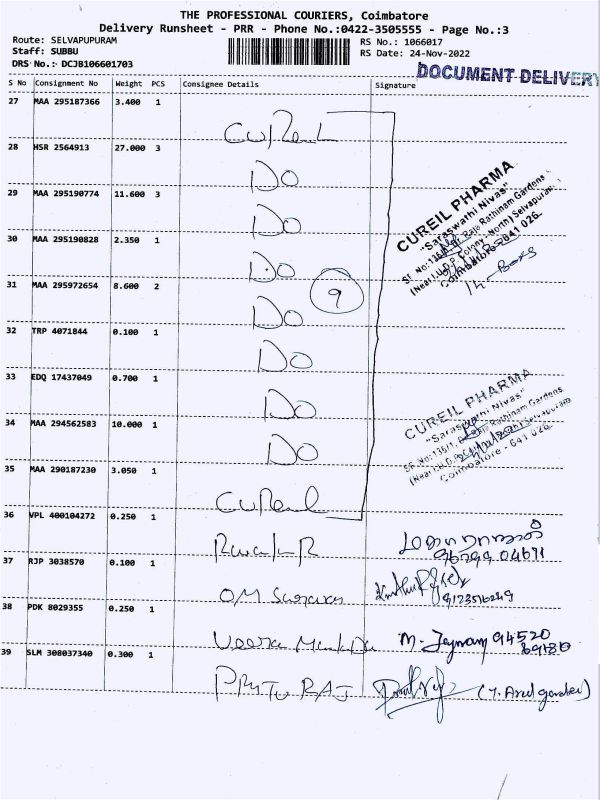 THE PROFESSIONAL COURIERS, Coimbatore
Delivery Runsheet - PRR - Phone No.:0422-3505555 - Page No.:3
Route: SELVAPUPURAM
RS No.: 1066017
Staff: SUBBU
RS Date: 24-Nov-2022
DRS No.: DCJB106601703
DOCUMENT DELIVERY
S No Consignment No Weight PCS Consignee Details Signature
27 MAA 295187366 3.400 1
Cureil
28 HSR 2564913 27.000 3
DO
29 MAA 295190774 11.600 3
DO
30 MAA 295190828 2.350 1
DO
31 MAA 295972654 8.600 2
9
DO
32 TRP 4071844 0.100 1
DO
33 EDQ 17437049 0.700 1
DO
34 MAA 294562583 10.000 1
DO
35 MAA 290187230 3.050 1
Cureil
36 VPL 400104272 0.250 1
37 RJP 3038570 0.100 1
OM
38 PDK 8029355 0.250 1
Veera
M. 94520
39 SLM 308037340 0.300 1
PRITU RAJ
CUREIL PHARMA
"Saraswathi Nivas"
Rathinam Gardens
Selvapuram
Coimbatore - 641 026.
14-Boxs
CUREIL PHARMA
"Saraswathi Nivas"
SF.No:136/1, Rathinam Gardens
Selvapuram
Coimbatore - 641 026.